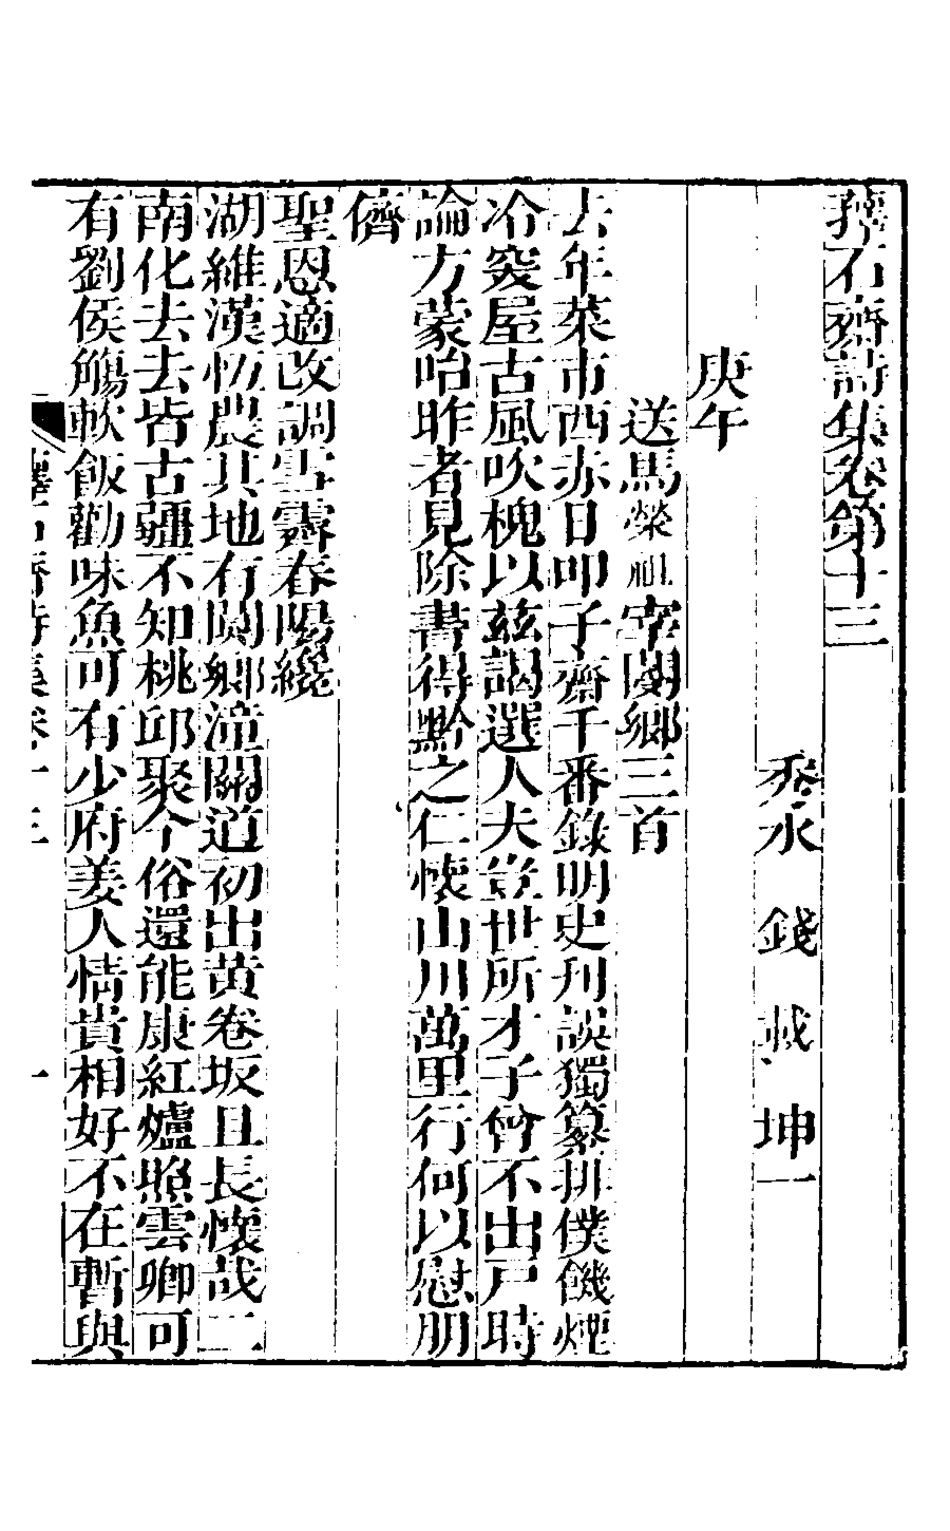 蘀石齋詩集卷第十三
秀水　錢　載　坤一
庚午
送馬榮祖宰閿鄉三首
去年菜市西赤日叩子齋千番錄明史刋誤獨纂排僕饑煙
冷突屋古風吹槐以茲謁選人夫豈世所才子曾不出戸時
論方蒙咍昨者見除書得黔之仁懷山川萬里行何以慰朋
儕
聖恩適改調雪霽春陽纔
湖維漢忇農其地有閿鄉潼關道初出黃卷坂且長懷哉二
南化去去皆古疆不知桃邱聚今俗還能康紅爐照雲卿可
有劉侯觴軟飯勸味魚可有少府姜人情貴相好不在暫與
蘀石齋詩集卷十三　一